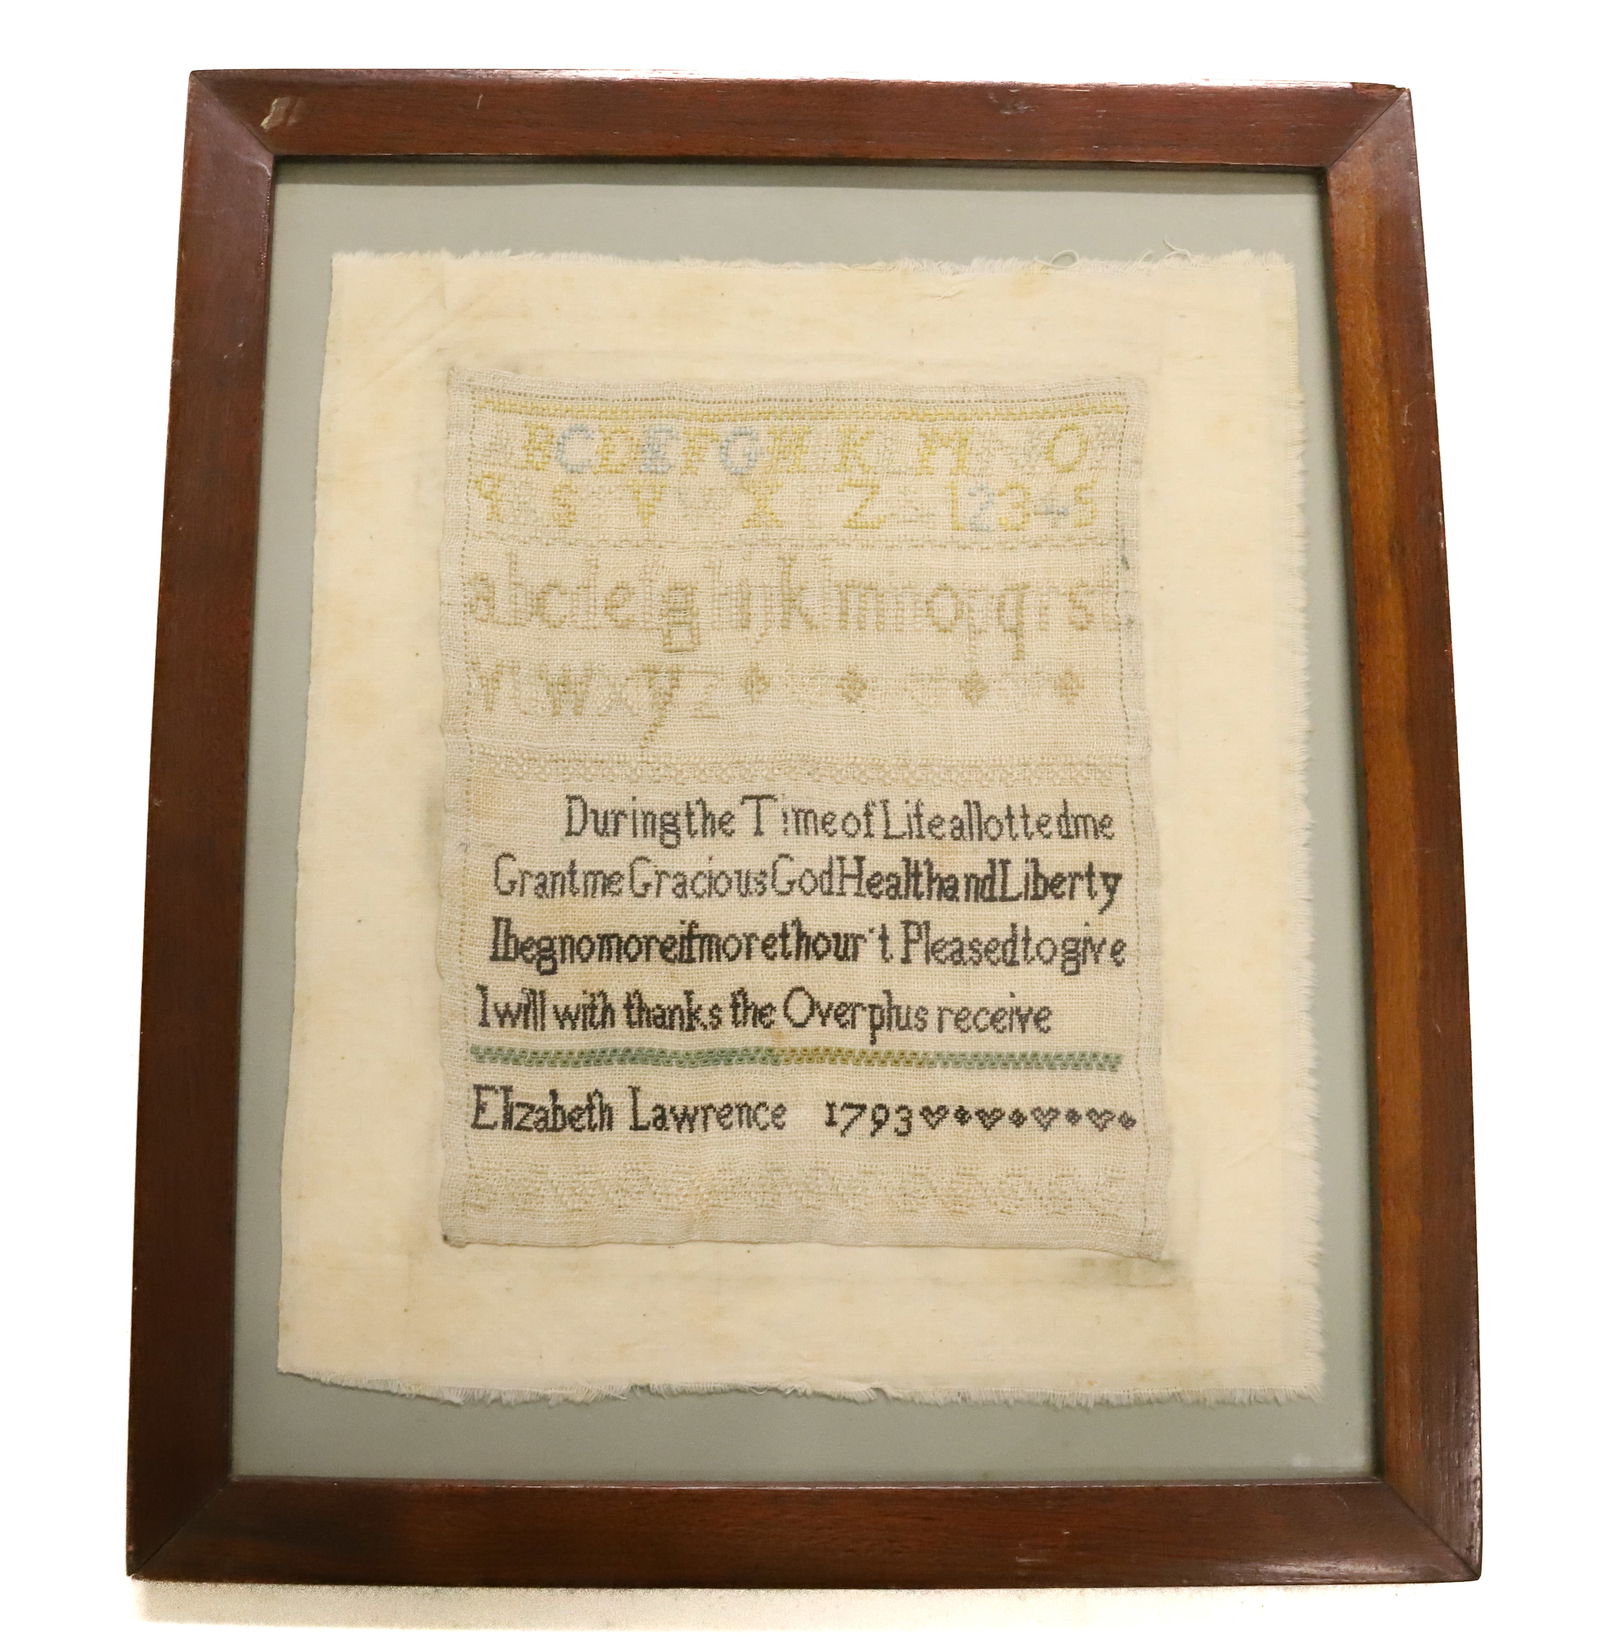 B C D E F G H I K L M N O
Q R S V X Z 1 2 3 4 5
a b c d e f g h i j k l m n o p q r s t
v u w x y z
During the Time of Life allotted me
Grant me Gracious God Health and Liberty
I beg no more if more thour't Pleased to give
I will with thanks the Overplus receive
Elizabeth Lawrence 1793